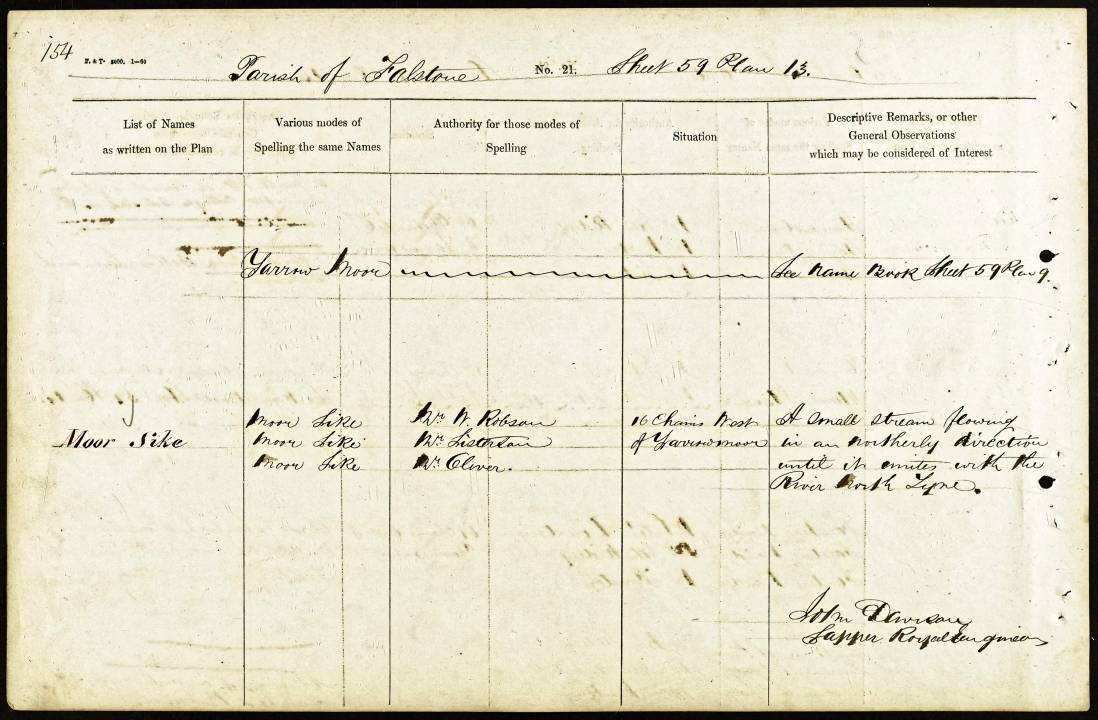 154
E. & T. 5000. 1—60
Parish of Falstone No. 21. Sheet 59 Plan 13.
List of Names
as written on the Plan
Various modes of
Spelling the same Names
Authority for those modes of
Spelling
Situation
Descriptive Remarks, or other
General Observations
which may be considered of Interest
Yarrow Moor See Name Book Sheet 59 Plan 9.
Moor Sike
Moor Sike
Moor Sike
Moor Sike
Mr. W. Robson
Mr. Sisterson
Mr. Oliver.
16 Chains West
of Yarrowmoor
A small stream flowing
in an northerly direction
until it unites with the
River North Tyne.
John Dawson
Sapper Royal Engineers